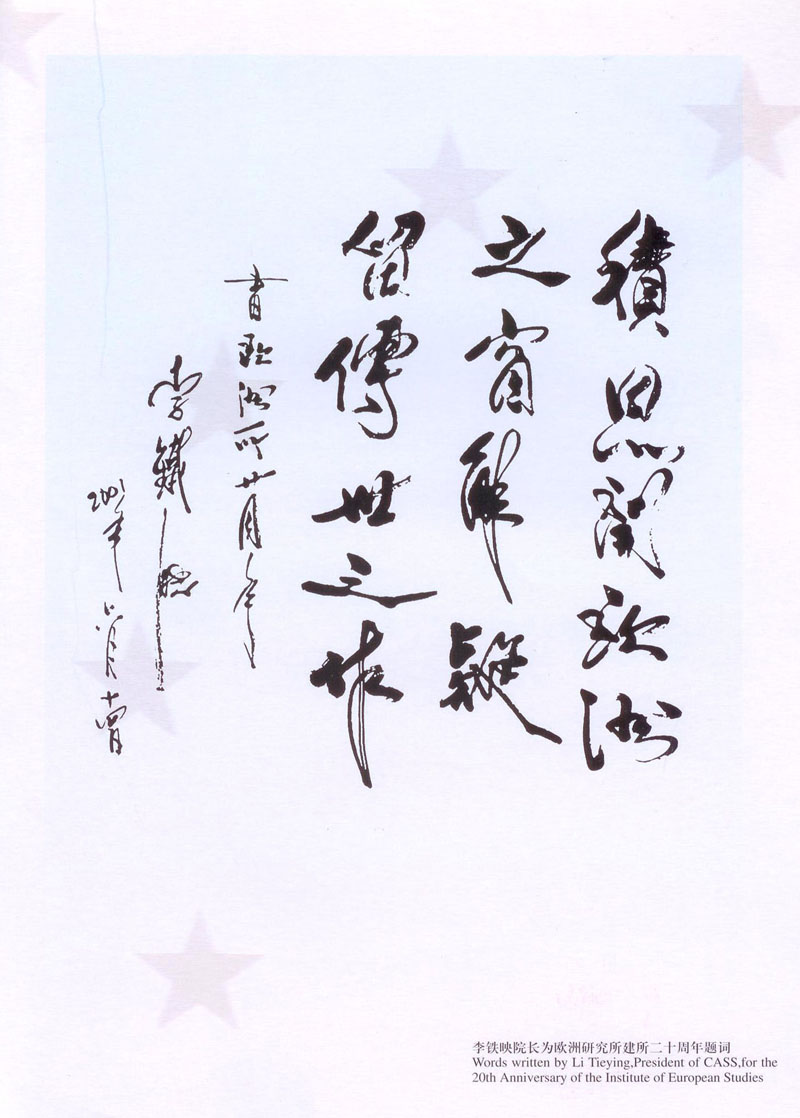 積思開欧洲
之窗解疑
留傳世之作
欧洲所廿周年
李鐵映
2001年六月十四日
李铁映院长为欧洲研究所建所二十周年题词
Words written by Li Tieying,President of CASS,for the
20th Anniversary of the Institute of European Studies